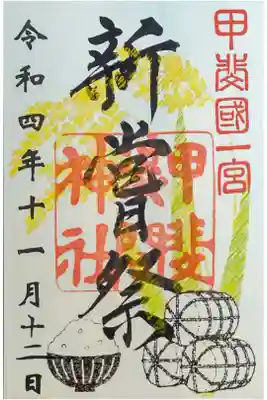 甲斐國一宮
新嘗祭
甲斐奈神社
令和四年十一月十二日